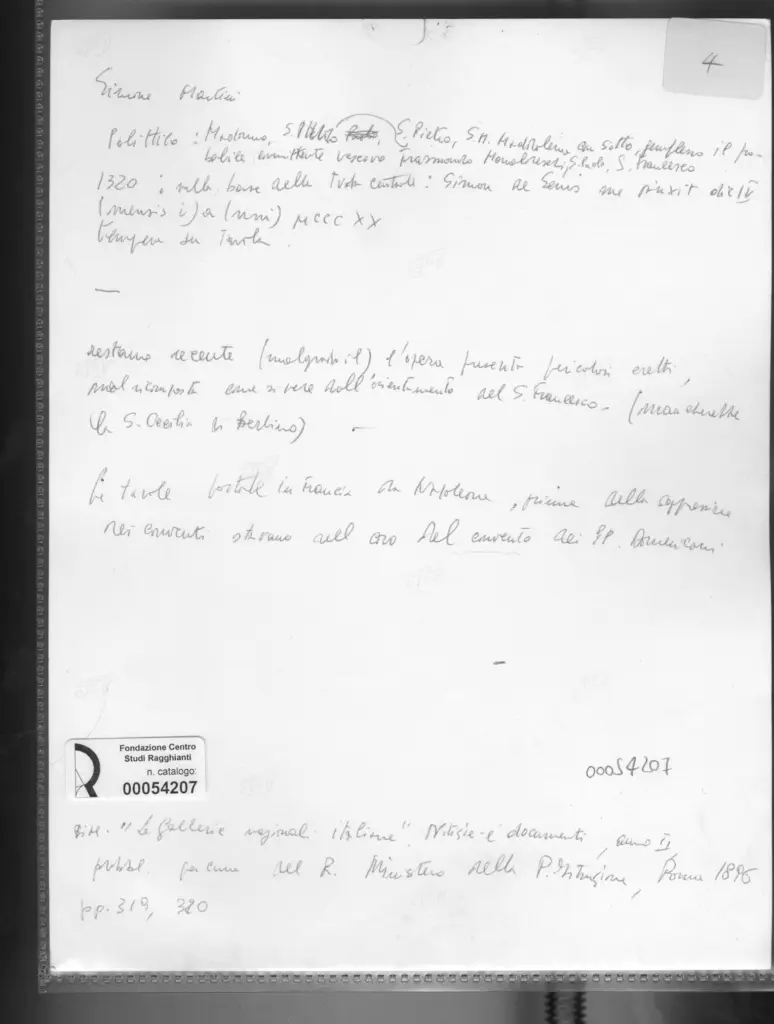 4
Simone Martini
Polittico: Madonna, S. Pietro, S. M. Maddalena con sotto, genuflesso il pro-
babile committente vescovo Trasmondo Monaldeschi, S. Paolo, S. Francesco
1320: sulla base della tavola centrale: Simon de Senis me pinxit die IV
(mensis i) a (nni) MCCC XX
tempera su tavola
—
restauro recente l'opera presenta
mal ricomposta come si vede dall'orientamento del S. Francesco -
la S. Cecilia di Berlino) -
Le tavole portate in Francia da Napoleone, prima della soppressione
dei conventi stavano nel coro del convento dei PP. Domenicani
—
Fondazione Centro
Studi Ragghianti
n. catalogo:
00054207
00054207
"Le Gallerie nazionali italiane". Notizie e documenti, anno II,
pubbl. per cura del R. Ministero della P. Istruzione, Roma 1896
pp. 319, 320